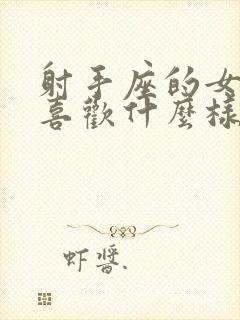 射手座的女
喜歡什麼樣
虾醬.